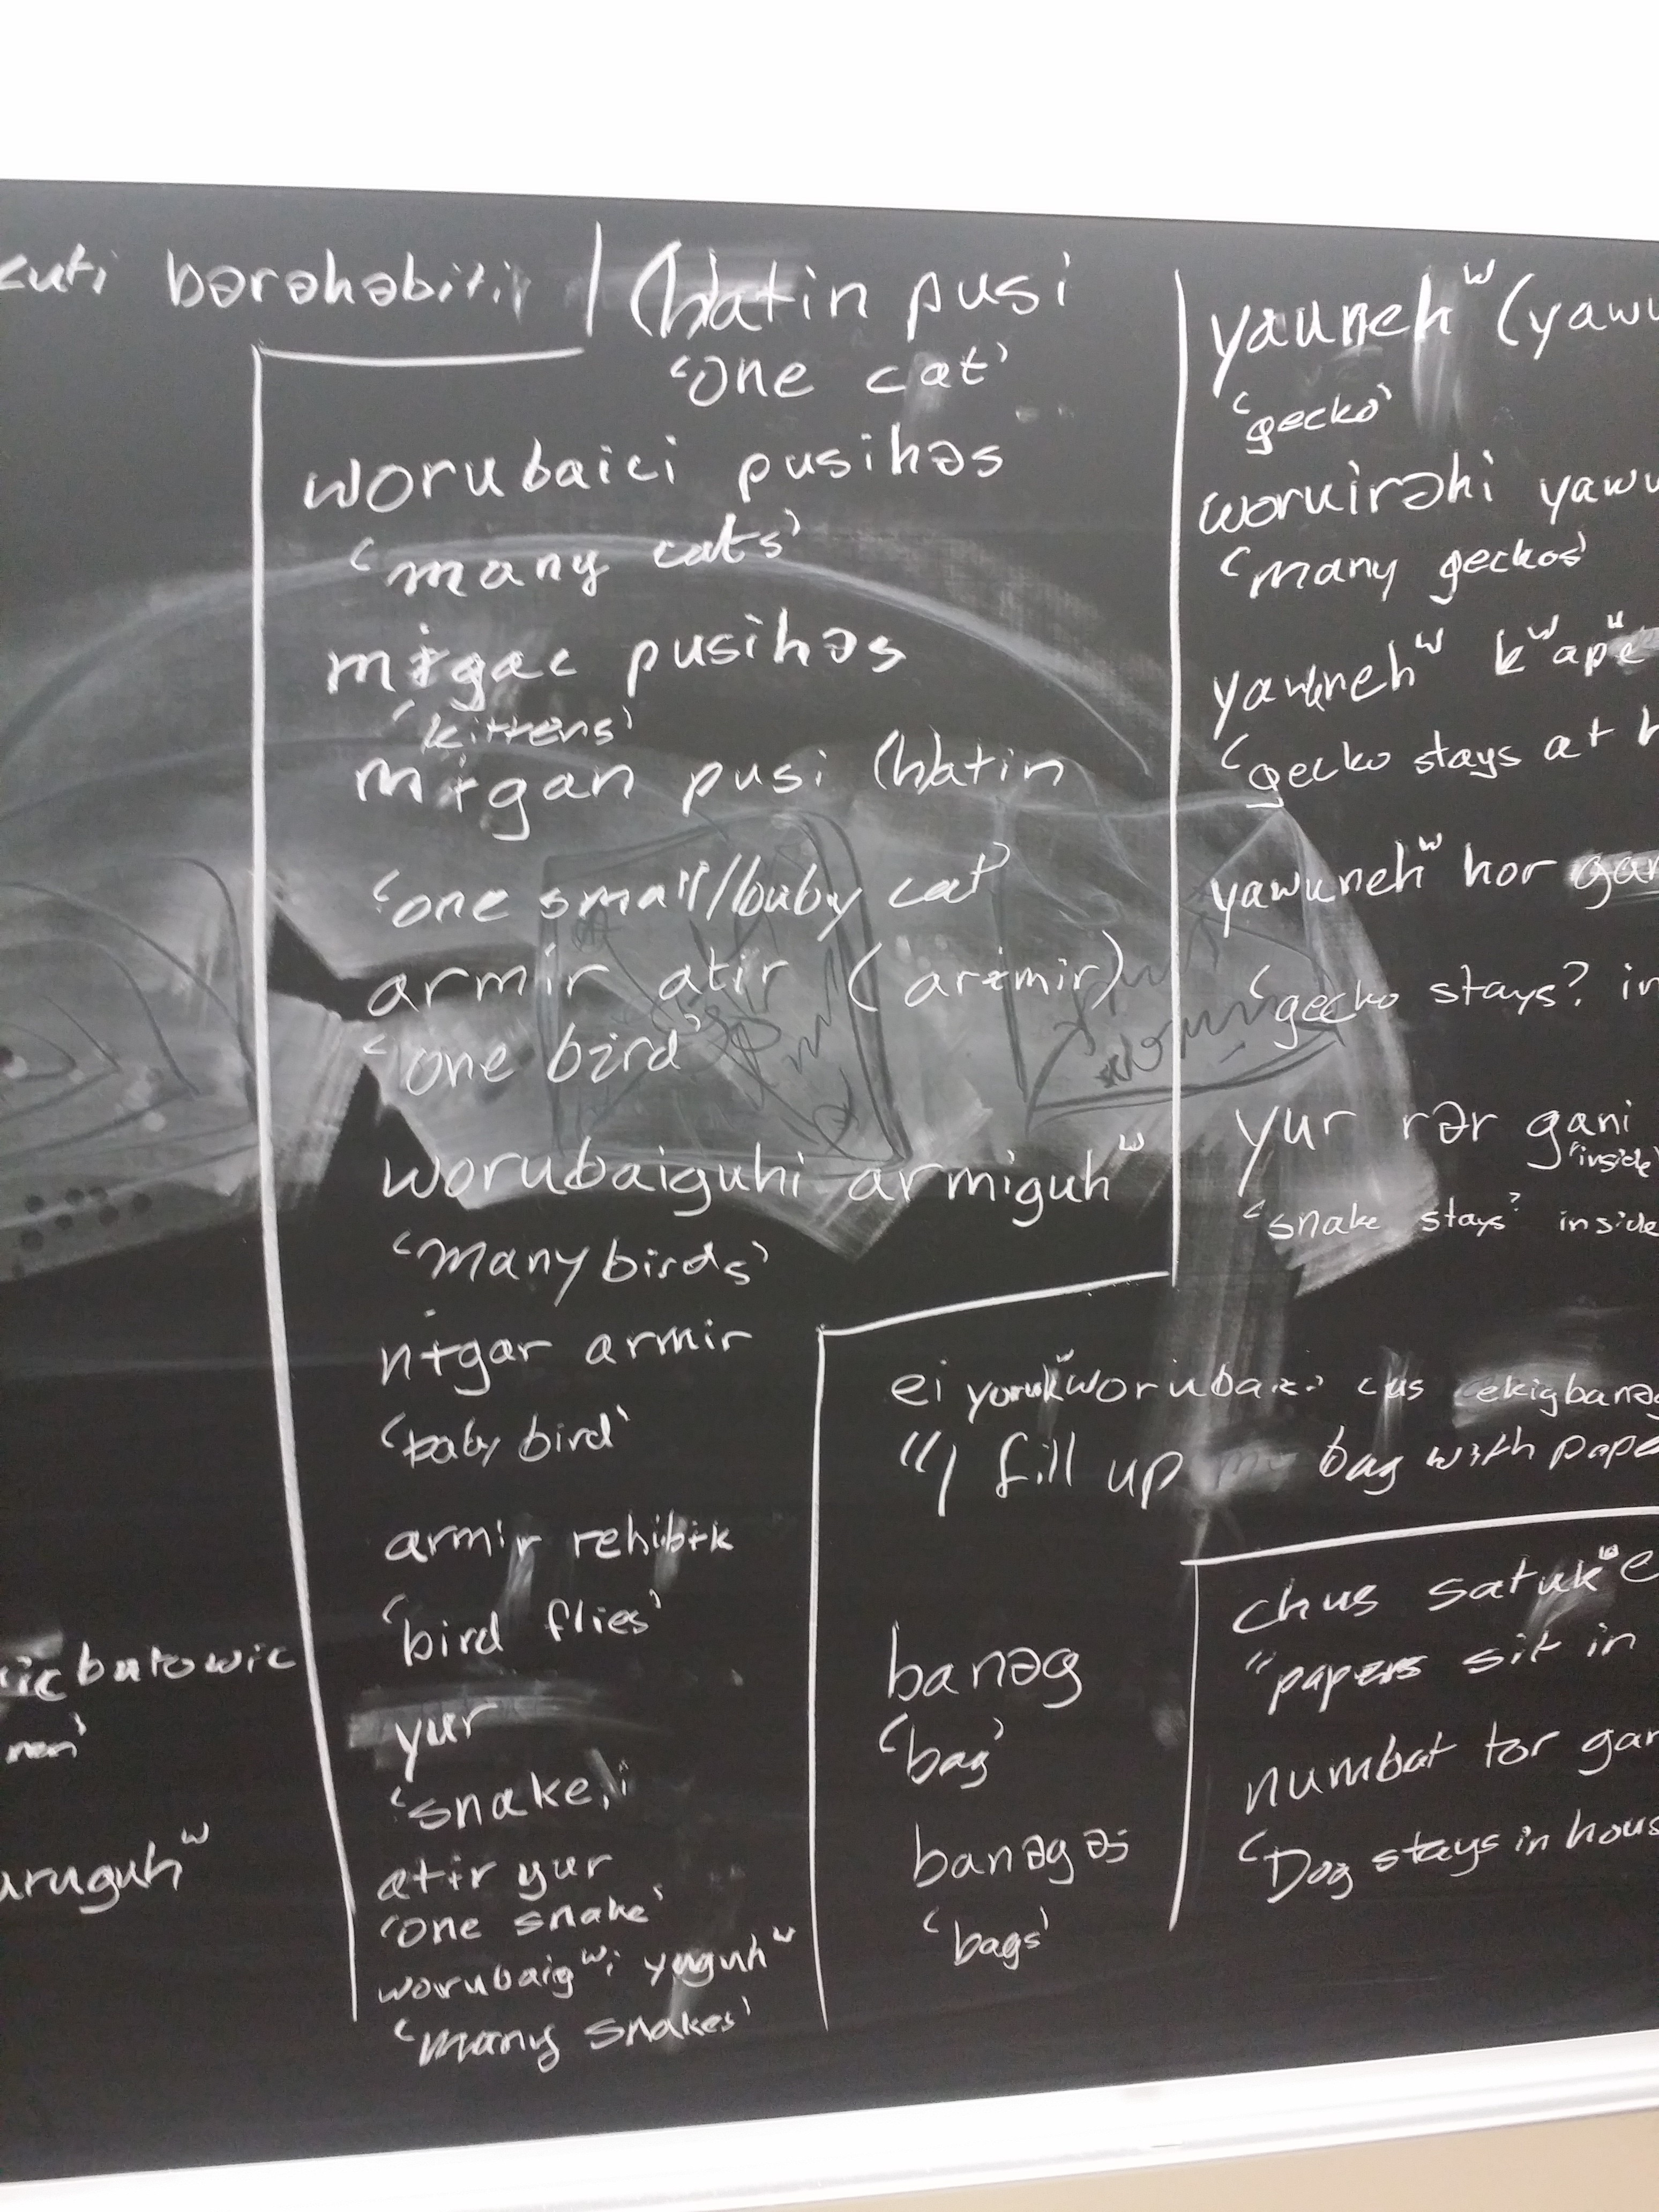 cuti bərəhəbitir
(h)atin pusi
'one cat'
worubaici pusihəs
'many cats'
mɨgac pusihəs
'kittens'
mɨgan pusi (h)atin
'one small/baby cat'
armir atir (arɨmir)
'one bird'
worubaiguhi armiguhʷ
'many birds'
nɨgar armir
'baby bird'
armir rehibɨk
'bird flies'
yur
'snake'
atir yur
'one snake'
worubaigʷi yuguhʷ
'many snakes'
icbutowic
uruguhʷ
yaunehʷ (yawu
'gecko'
woruirəhi yawu
'many geckos'
yawunehʷ kʷape
'gecko stays at h
yawunehʷ hor gan
'gecko stays? in
yur rər gani
'inside'
'snake stays? inside
ei cus ekigbanəg
"I fill up bag with pape
banəg
'bag'
banəgəs
'bags'
chus satukʷe
"papers sit in
numbat tor gan
'Dog stays in hous